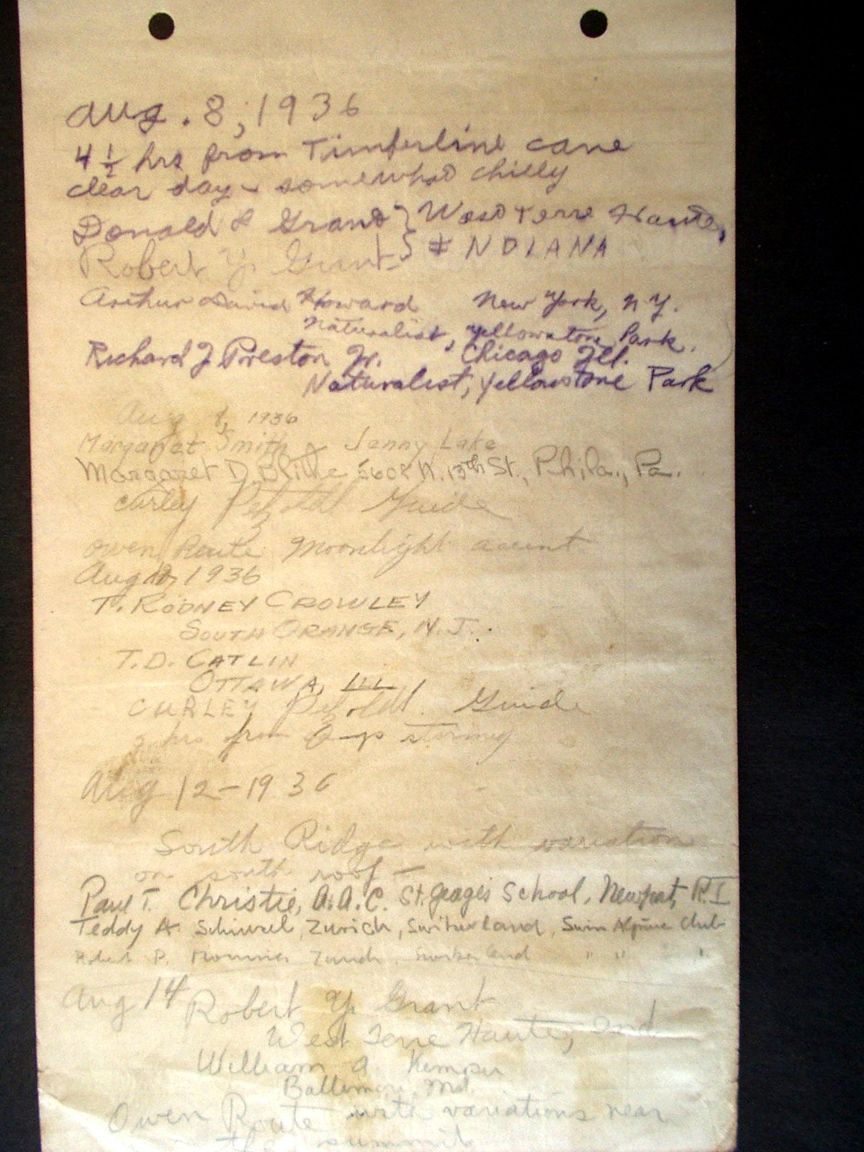 Aug. 8, 1936
4 1/2 hrs from Timberline cave
clear day - somewhat chilly
Donald Grant } West Terre Haute,
Robert Y. Grant } INDIANA
Arthur David Howard New York, N.Y.
Naturalist, Yellowstone Park.
Richard J Preston Jr. Chicago Ill.
Naturalist, Yellowstone Park
Aug 1936
Margaret Smith Jenny Lake
Margaret D. N. 13th St., Phila., Pa.
Curley Petzoldt Guide
Owen Route Moonlight ascent
Aug 1936
T. RODNEY CROWLEY
SOUTH ORANGE, N.J.
T.D. CATLIN
OTTAWA, ILL
CURLEY Petzoldt. Guide
hrs from stormy
Aug 12-1936
South Ridge with variation
on south roof -
Paul T. Christie, A.A.C. St. Georges School, Newport, R.I
Teddy A. Zurich, Switzerland, Swiss Alpine Club
Robert P. Zurich, Switzerland " " "
Aug 14 Robert Y. Grant
West Terre Haute, Ind
William
Baltimore Md.
Owen Route with variations near
the summit